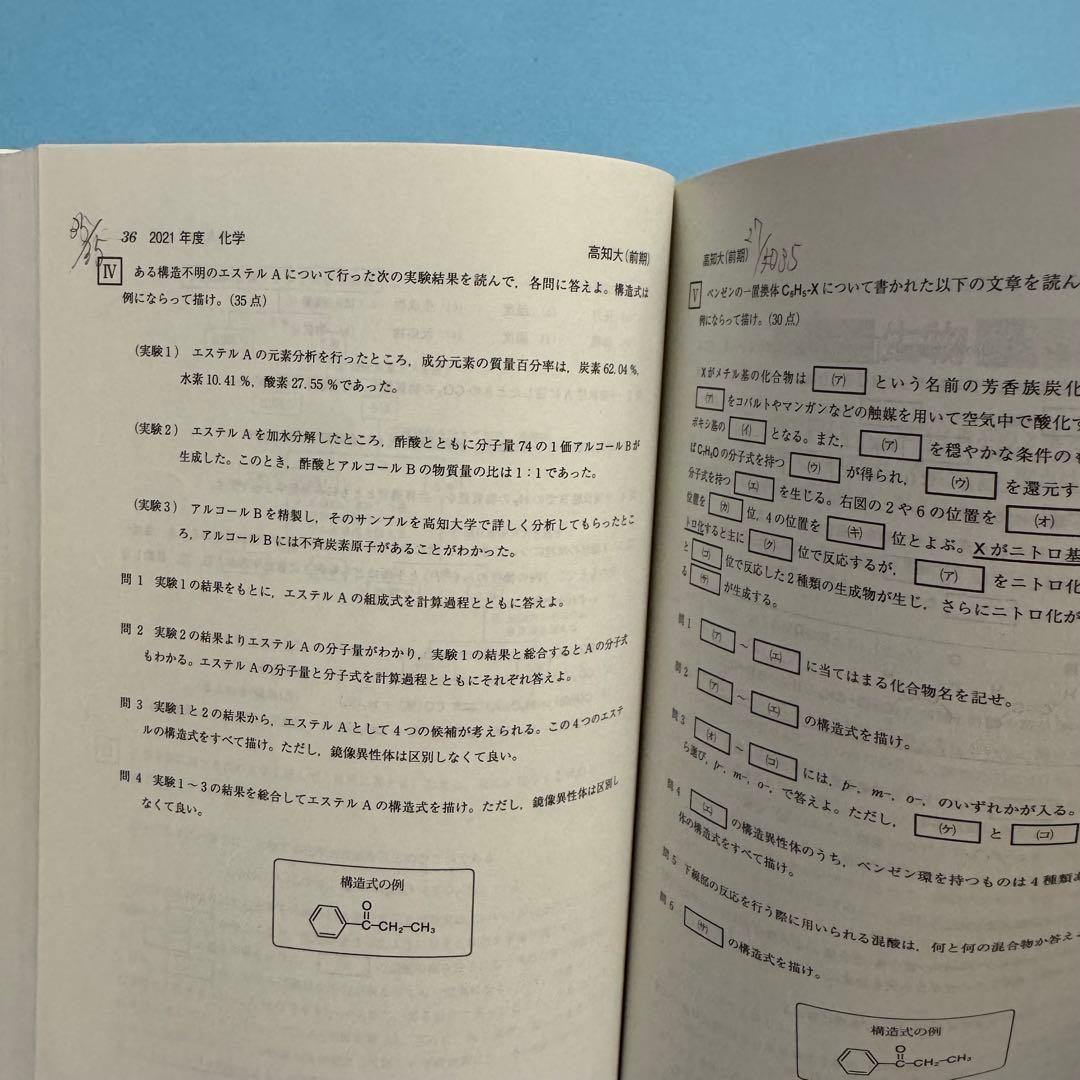 35/35
36 2021年度 化学
高知大(前期)
Ⅳ ある構造不明のエステルAについて行った次の実験結果を読んで，各問に答えよ。構造式は
例にならって描け。(35点)
(実験1) エステルAの元素分析を行ったところ，成分元素の質量百分率は，炭素62.04％，
水素10.41％，酸素27.55％であった。
(実験2) エステルAを加水分解したところ，酢酸とともに分子量74の1価アルコールBが
生成した。このとき，酢酸とアルコールBの物質量の比は1：1であった。
(実験3) アルコールBを精製し，そのサンプルを高知大学で詳しく分析してもらったとこ
ろ，アルコールBには不斉炭素原子があることがわかった。
問1 実験1の結果をもとに，エステルAの組成式を計算過程とともに答えよ。
問2 実験2の結果よりエステルAの分子量がわかり，実験1の結果と総合するとAの分子式
もわかる。エステルAの分子量と分子式を計算過程とともにそれぞれ答えよ。
問3 実験1と2の結果から，エステルAとして4つの候補が考えられる。この4つのエステ
ルの構造式をすべて描け。ただし，鏡像異性体は区別しなくて良い。
問4 実験1～3の結果を総合してエステルAの構造式を描け。ただし，鏡像異性体は区別し
なくて良い。
構造式の例
O
C－CH₂－CH₃
高知大(前期)
27
Ⅴ ベンゼンの一置換体C₆H₅-Xについて書かれた以下の文章を読ん
例にならって描け。(30点)
Xがメチル基の化合物は (ア) という名前の芳香族炭化
(ア) をコバルトやマンガンなどの触媒を用いて空気中で酸化す
ボキシ基の (イ) となる。また， (ア) を穏やかな条件の
ばC₇H₆Oの分子式を持つ (ウ) が得られ， (ウ) を還元す
分子式を持つ (エ) を生じる。右図の2や6の位置を (オ)
位置を (カ) 位，4の位置を (キ) 位とよぶ。Xがニトロ基
トロ化すると主に (ク) 位で反応するが， (ア) をニトロ化
と (コ) 位で反応した2種類の生成物が生じ，さらにニトロ化が
る (サ) が生成する。
問1 (ア) ～ (エ) に当てはまる化合物名を記せ。
問2 (ア) ～ (エ) の構造式を描け。
問3 (オ) ～ (コ) には，p-，m-，o-，のいずれかが入る。
ら選び，p-，m-，o-，で答えよ。ただし， (ケ) と (コ)
問4 (エ) の構造異性体のうち，ベンゼン環を持つものは4種類
体の構造式をすべて描け。
問5 下線部の反応を行う際に用いられる混酸は，何と何の混合物か答え
問6 (サ) の構造式を描け。
構造式の例
O
C－CH₂－CH₃